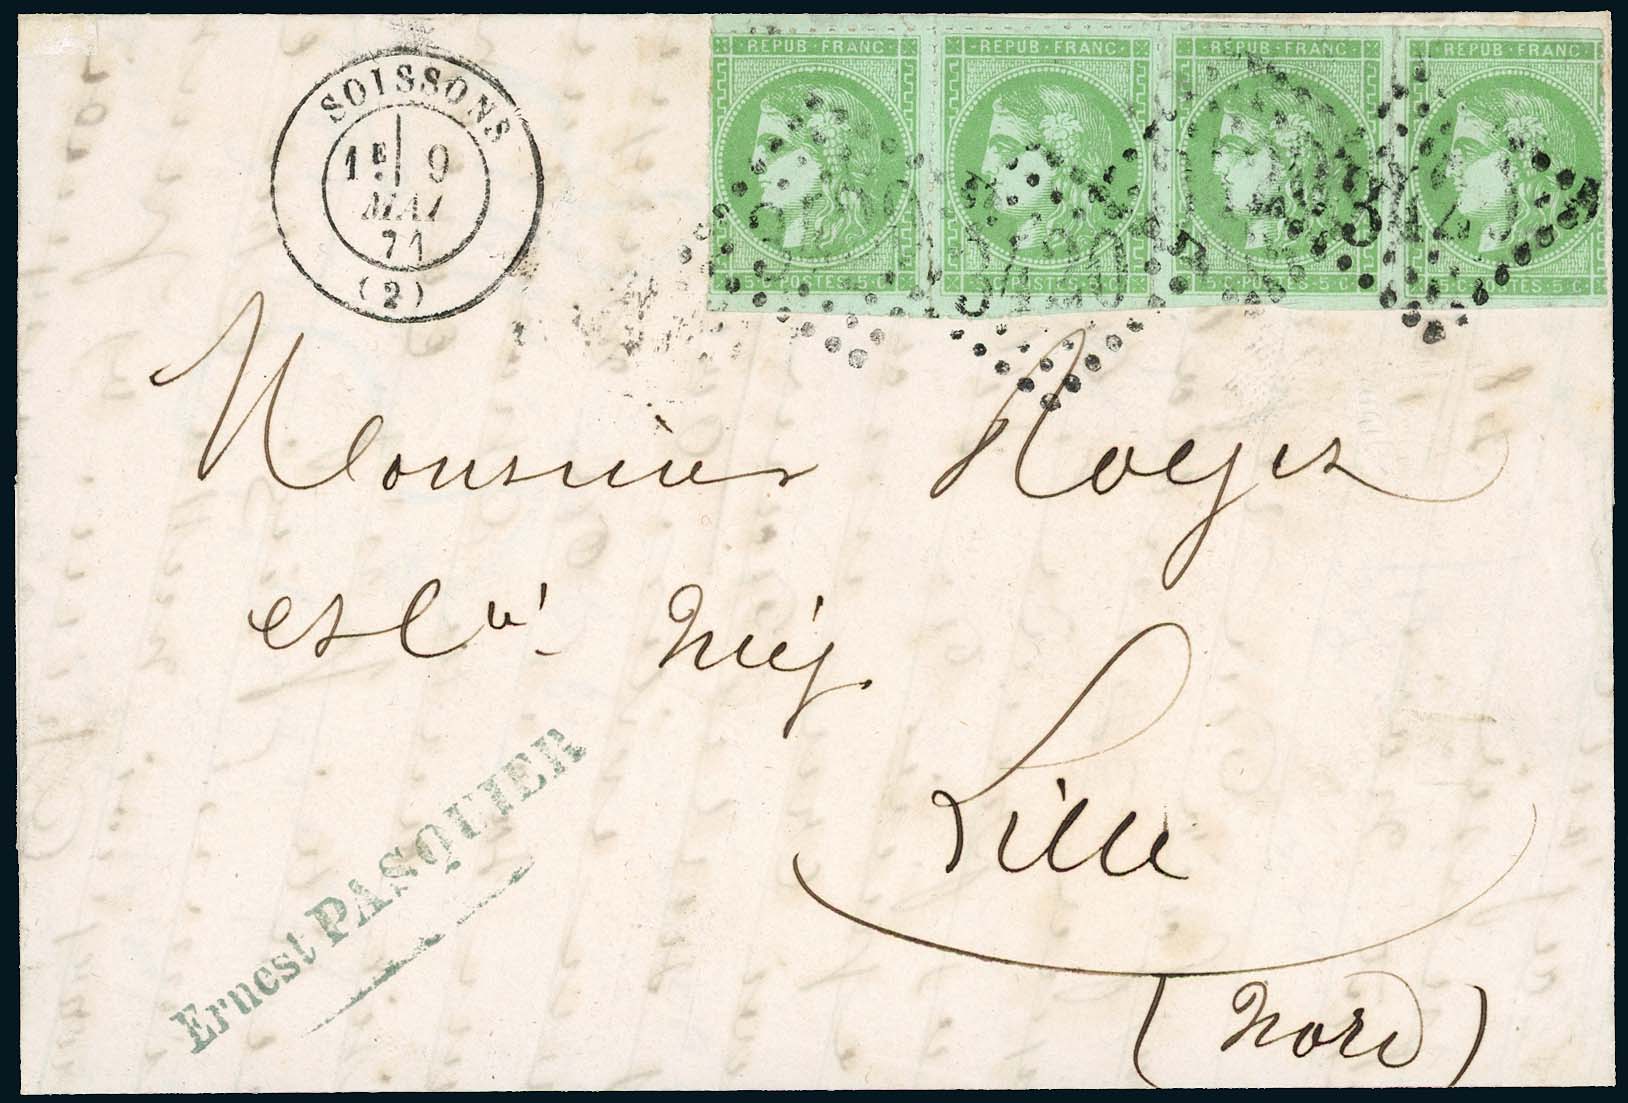 SOISSONS
1E 9
MAI
71
(2)
REPUB·FRANC REPUB·FRANC REPUB·FRANC REPUB·FRANC
3420 3420 3420
5·C·POSTES·5·C· 5·C·POSTES·5·C· 5·C·POSTES·5·C· 5·C·POSTES·5·C·
Monsieur
Nég
Lille
(Nord)
Ernest PASQUIER